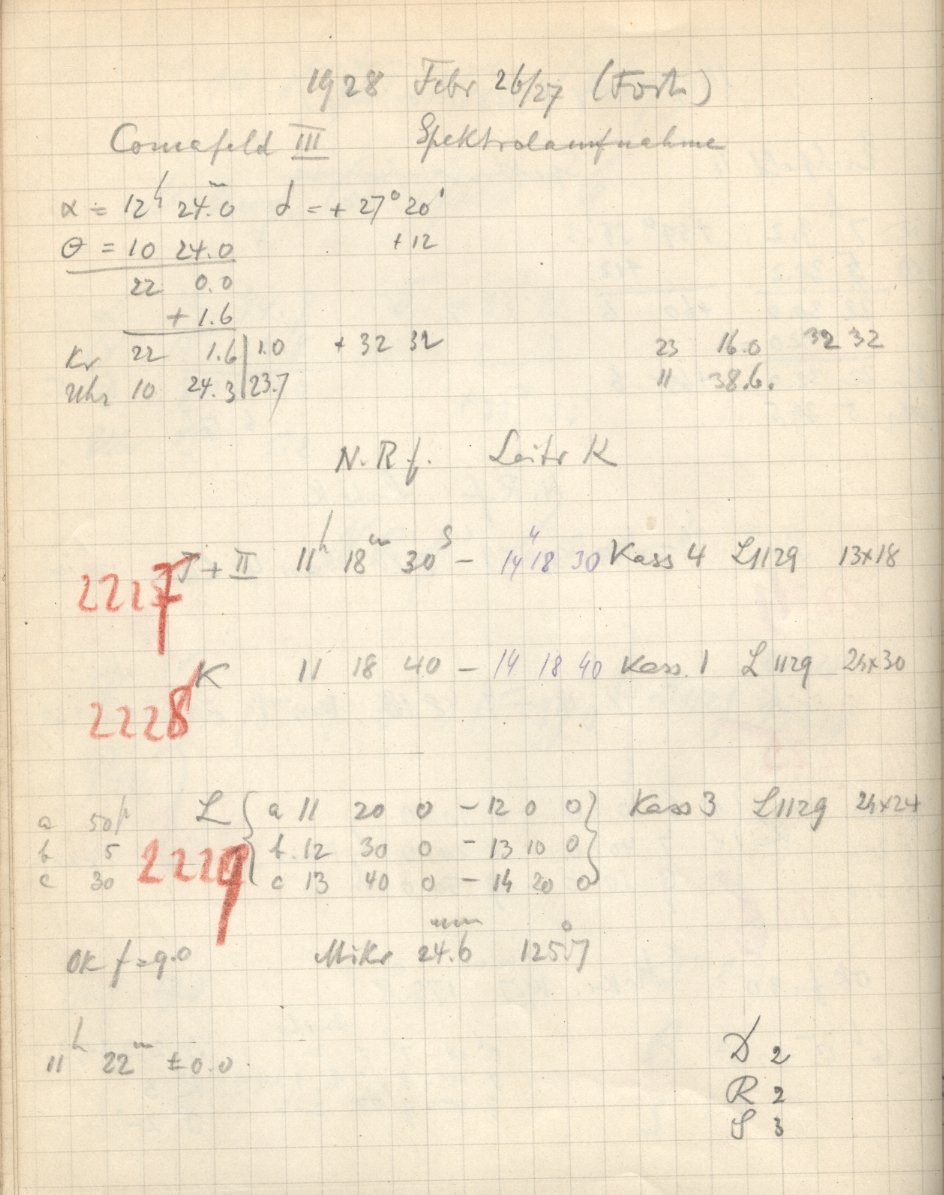 1928 Febr 26/27 (Forts.)
Comafeld III Spektralaufnahme
α = 12h 24.m0 δ = + 27° 20'
θ = 10 24.0 + 12
22 0.0
+ 1.6
Kr 22 1.6 | 1.0 + 32 32 23 16.0 32 32
Uhr 10 24.3 | 23.7 11 38.6.
N.R f. Leitr K
T + II 11h 18m 30s – 14h 18 30 Kass 4 L1129 13x18
2227
K 11 18 40 – 14 18 40 Kass. 1 L 1129 24x30
2228
L { a 11 20 0 – 12 0 0 } Kass 3 L1129 24x24
a 50
b 5 2229 b. 12 30 0 – 13 10 0
c 30 c 13 40 0 – 14 20 0
OK f = 9.0 Mikr 24.6 mm 125.°7
11h 22m ± 0.0.
D 2
R 2
S 3